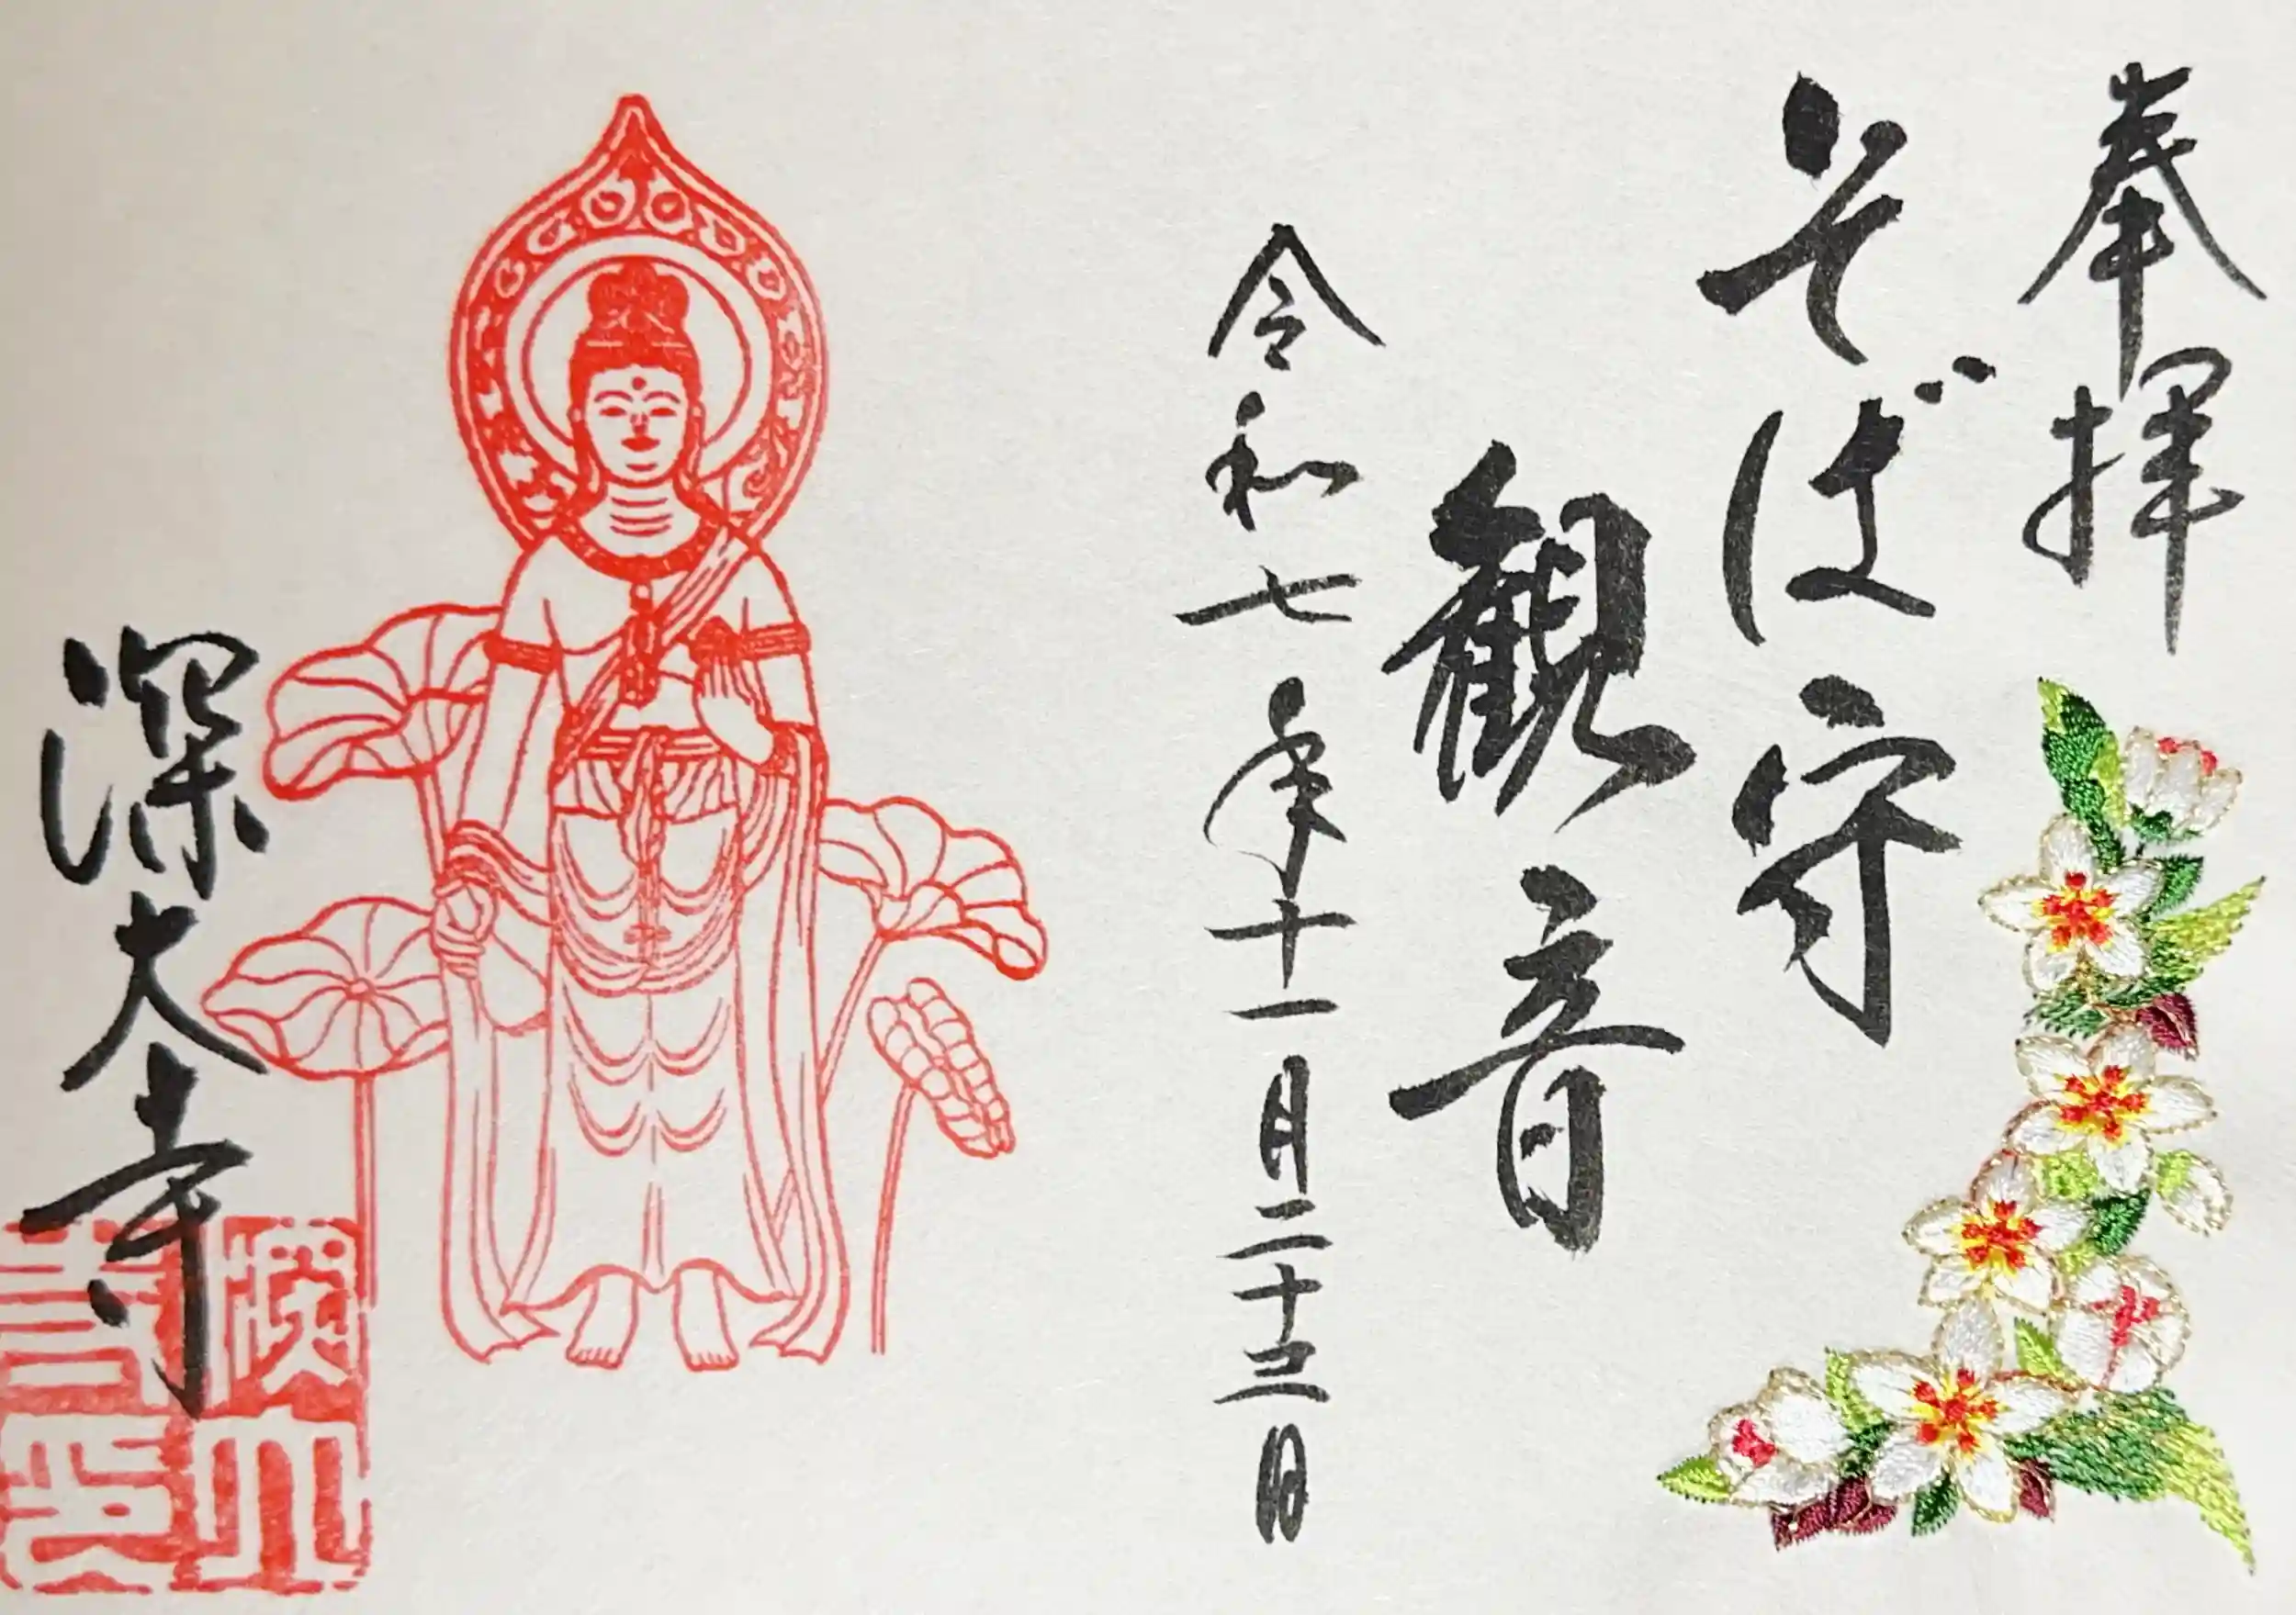 奉拝
そば守
観音
令和七年十一月二十三日
深大寺
深大寺印